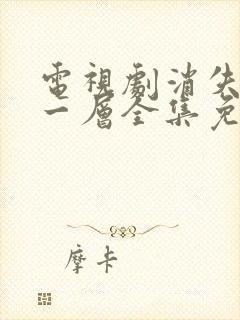 電視劇消失
一層全集免
摩卡